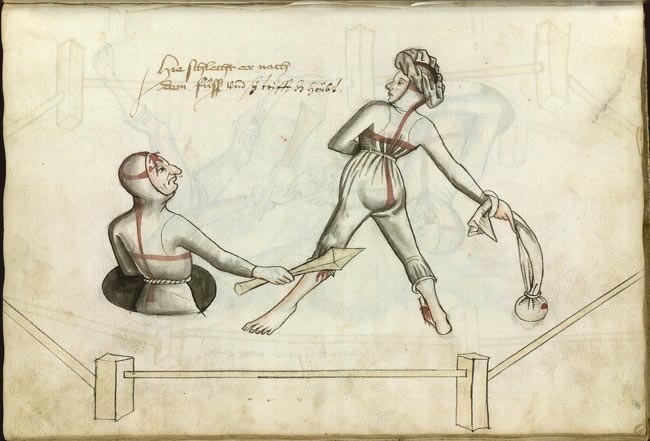 Hie schlecht er nach
dem fuͦß vnd sy trifft dz höubt.